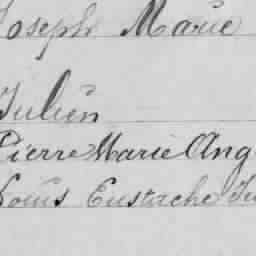 Joseph Marie
Julien
Pierre Marie Ang
Louis Eustache